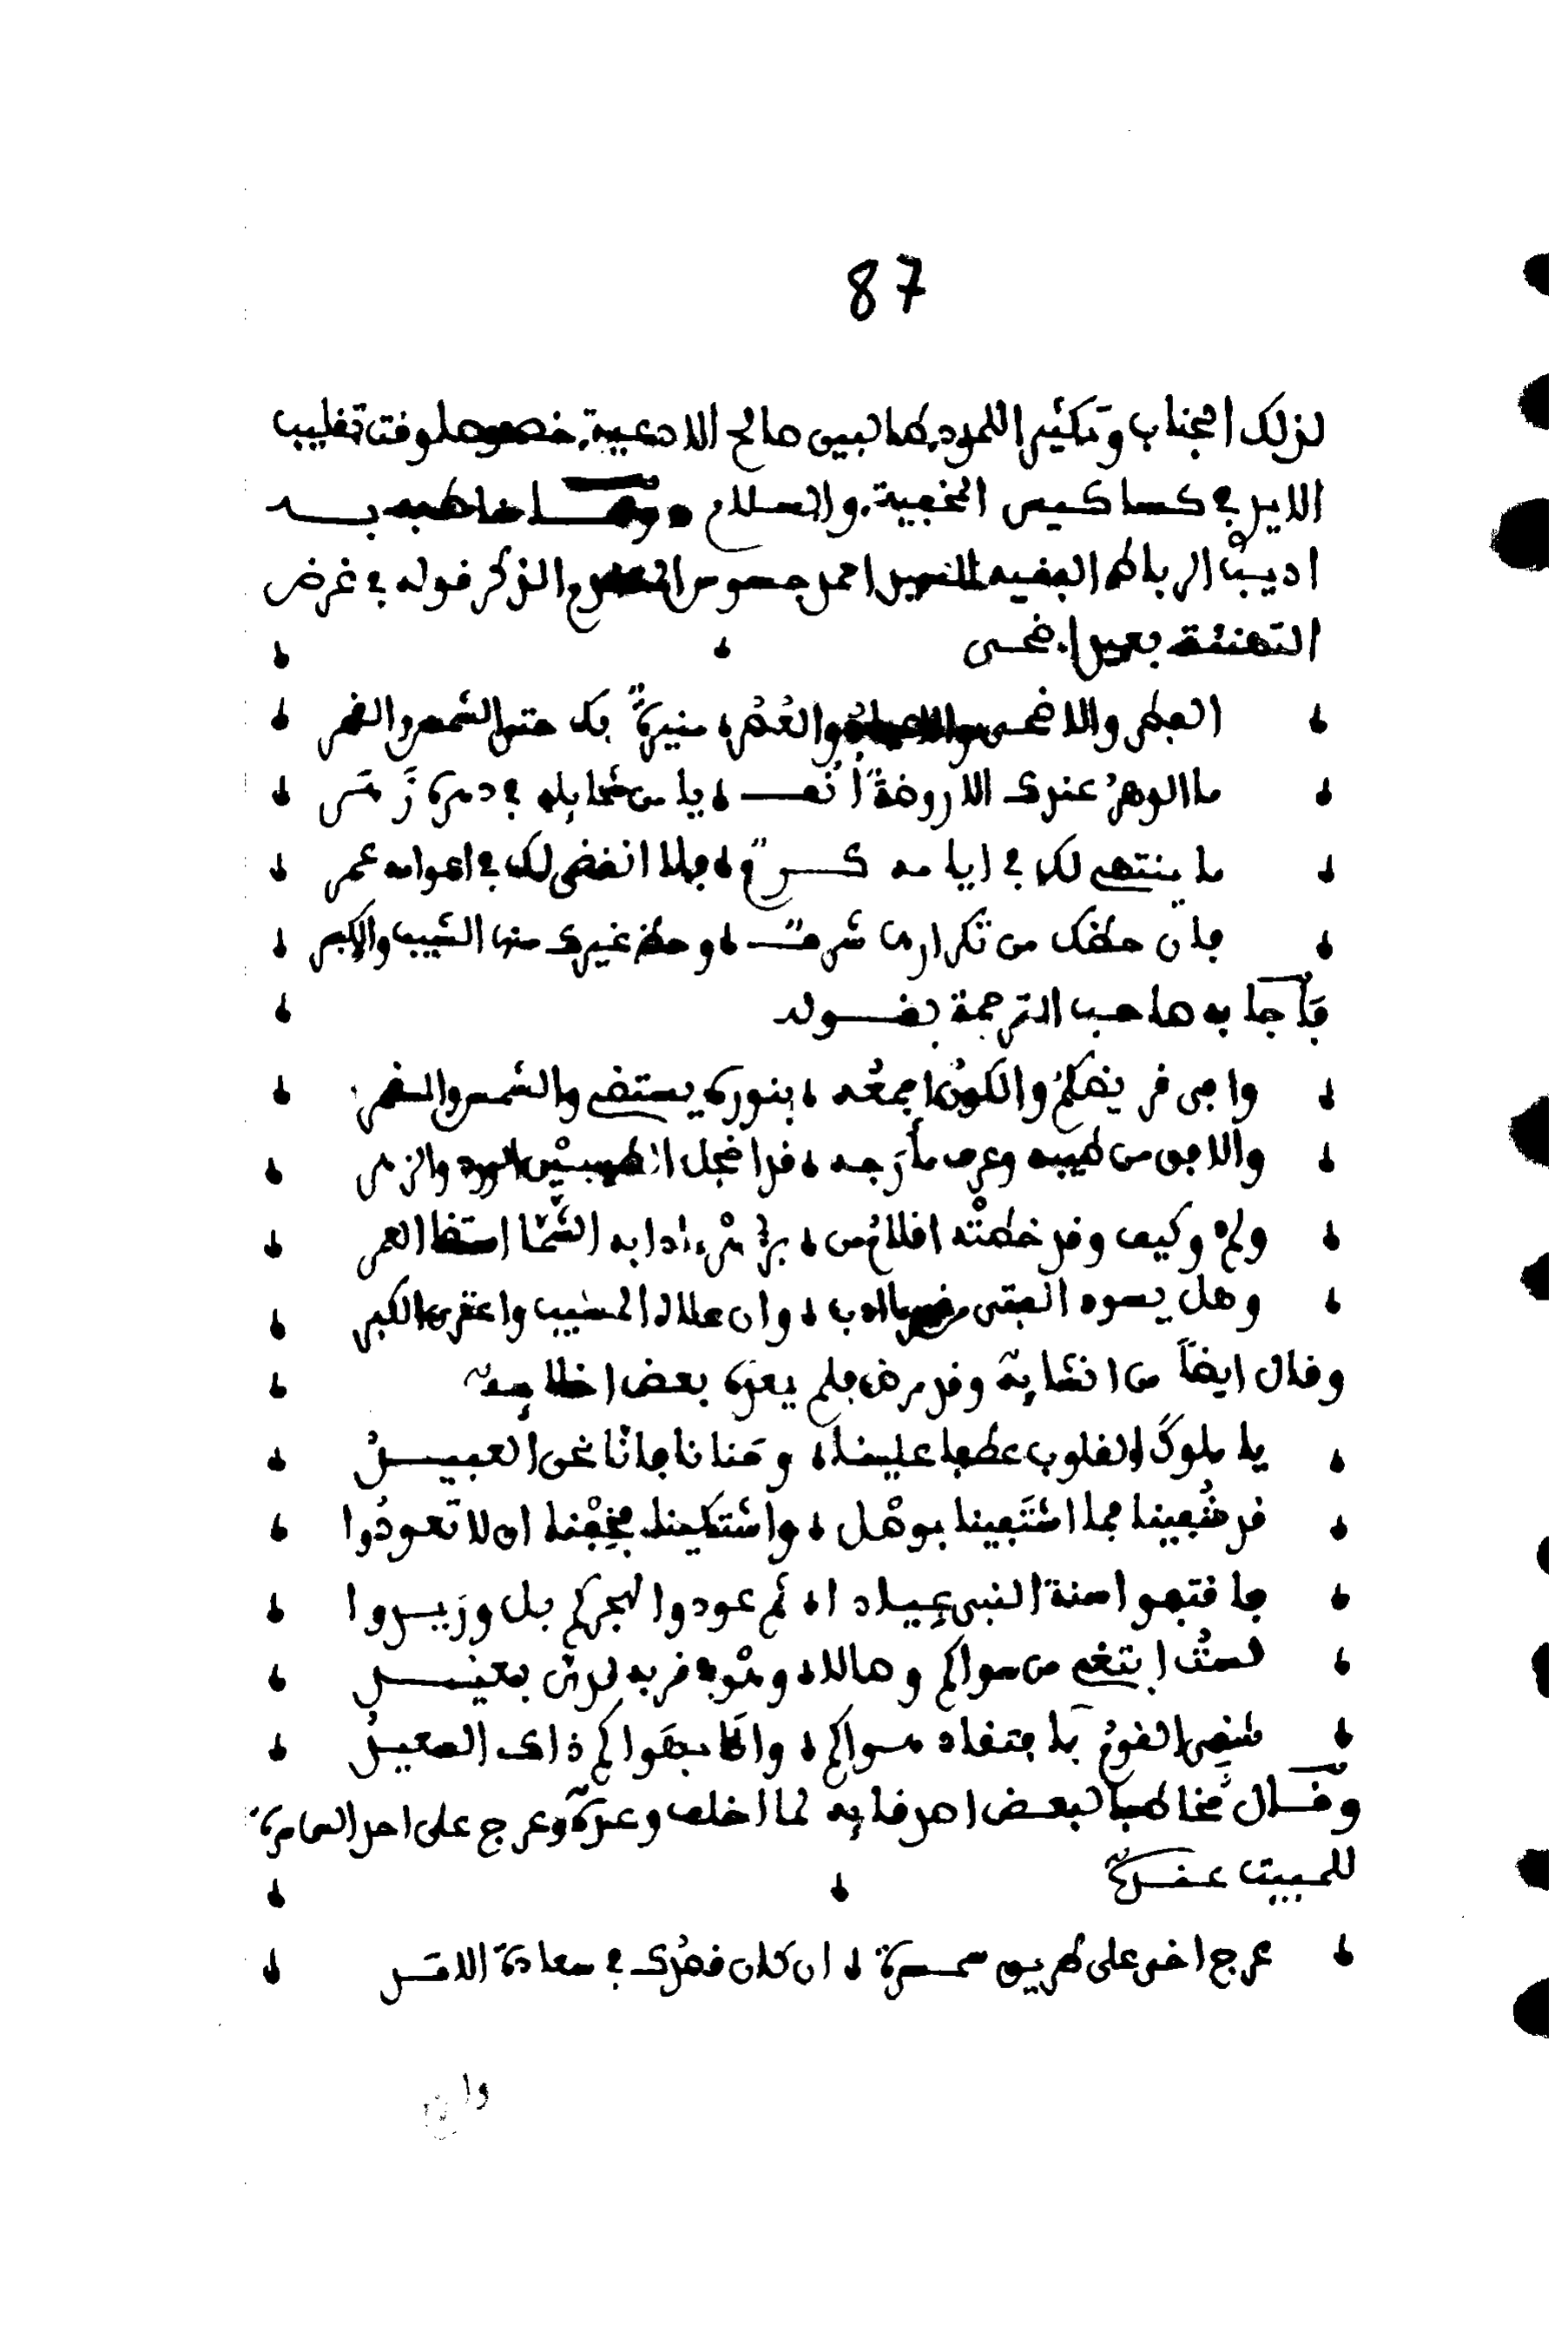 87
لذلك الجناب وتكثير اللمود طالبين صالح الادعية، خصوصا وقت تغليب
الاير في كساكيس الخفية، والسلام ومما خاطبه به
اديب الرباط الفقيه السيد احمد جسوس المتقدم الذكر قوله في غرض
التهنئة بعيد اضحى
الفطر والاضحى والاعياد والعصر منيرة بك حتى الشمس والقمر
ما الدهر عندى الا روضة أنف يا من شمائله في دهره زهر
ما ينتهى لك في ايامه كرم فلا انقضى لك في اعوامه عمر
فان حظك من تكرارها شرف وحظ غيرى منها الشيب والكبر
فأجابه صاحب الترجمة بقوله
وافى قريضكم والكون اجمعه بنوره يستضىء والشمس والقمر
والافق من طيبه وعرف تأرجه قد اخجل الطيبين الورد والزهر
ولم وكيف وقد خطته اقلام من بدر ادابه الشما استضا العمر
وهل يسود الفتى بغير ادب وان علاه المشيب واعترى الكبر
وقال ايضا من انشائه وقد مرض فلم يعده بعض اخلائه
يا ملوك القلوب عطفا علينا وحنانا فانا نحن العبيد
قد شفينا فما اشتفينا بوصل واشتكينا فخفنا ان لا تعودوا
فاقتفوا سنة النبى عيادا ثم عودوا لهجركم بل وزيدوا
لست ابتغى من سواكم وصالا ومتوه قربه لدى بعيد
شقى القوم بافتقاد سواكم وانا بهواكم ذاك السعيد
وقال مخاطبا لبعض اصدقائه لما اخلف وعده وعرج على احد السامرة
للمبيت عنده
عرج اخى على طريق سمسرة ان كان قصدك في سعادة الامد
وان